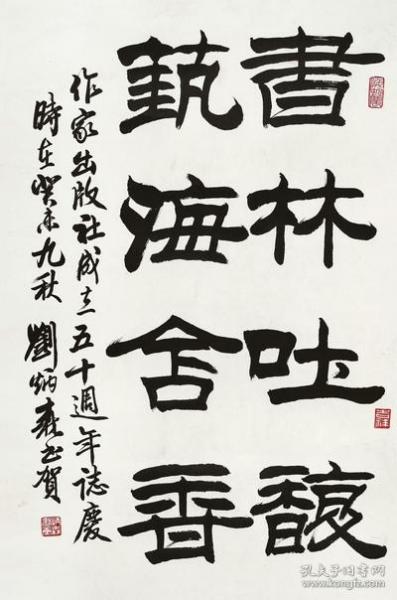 書林吐馥
埶海含香
作家出版社成立五十週年誌慶
時在癸未九秋 劉炳森书賀
孔夫子旧书网
www.kongfz.com